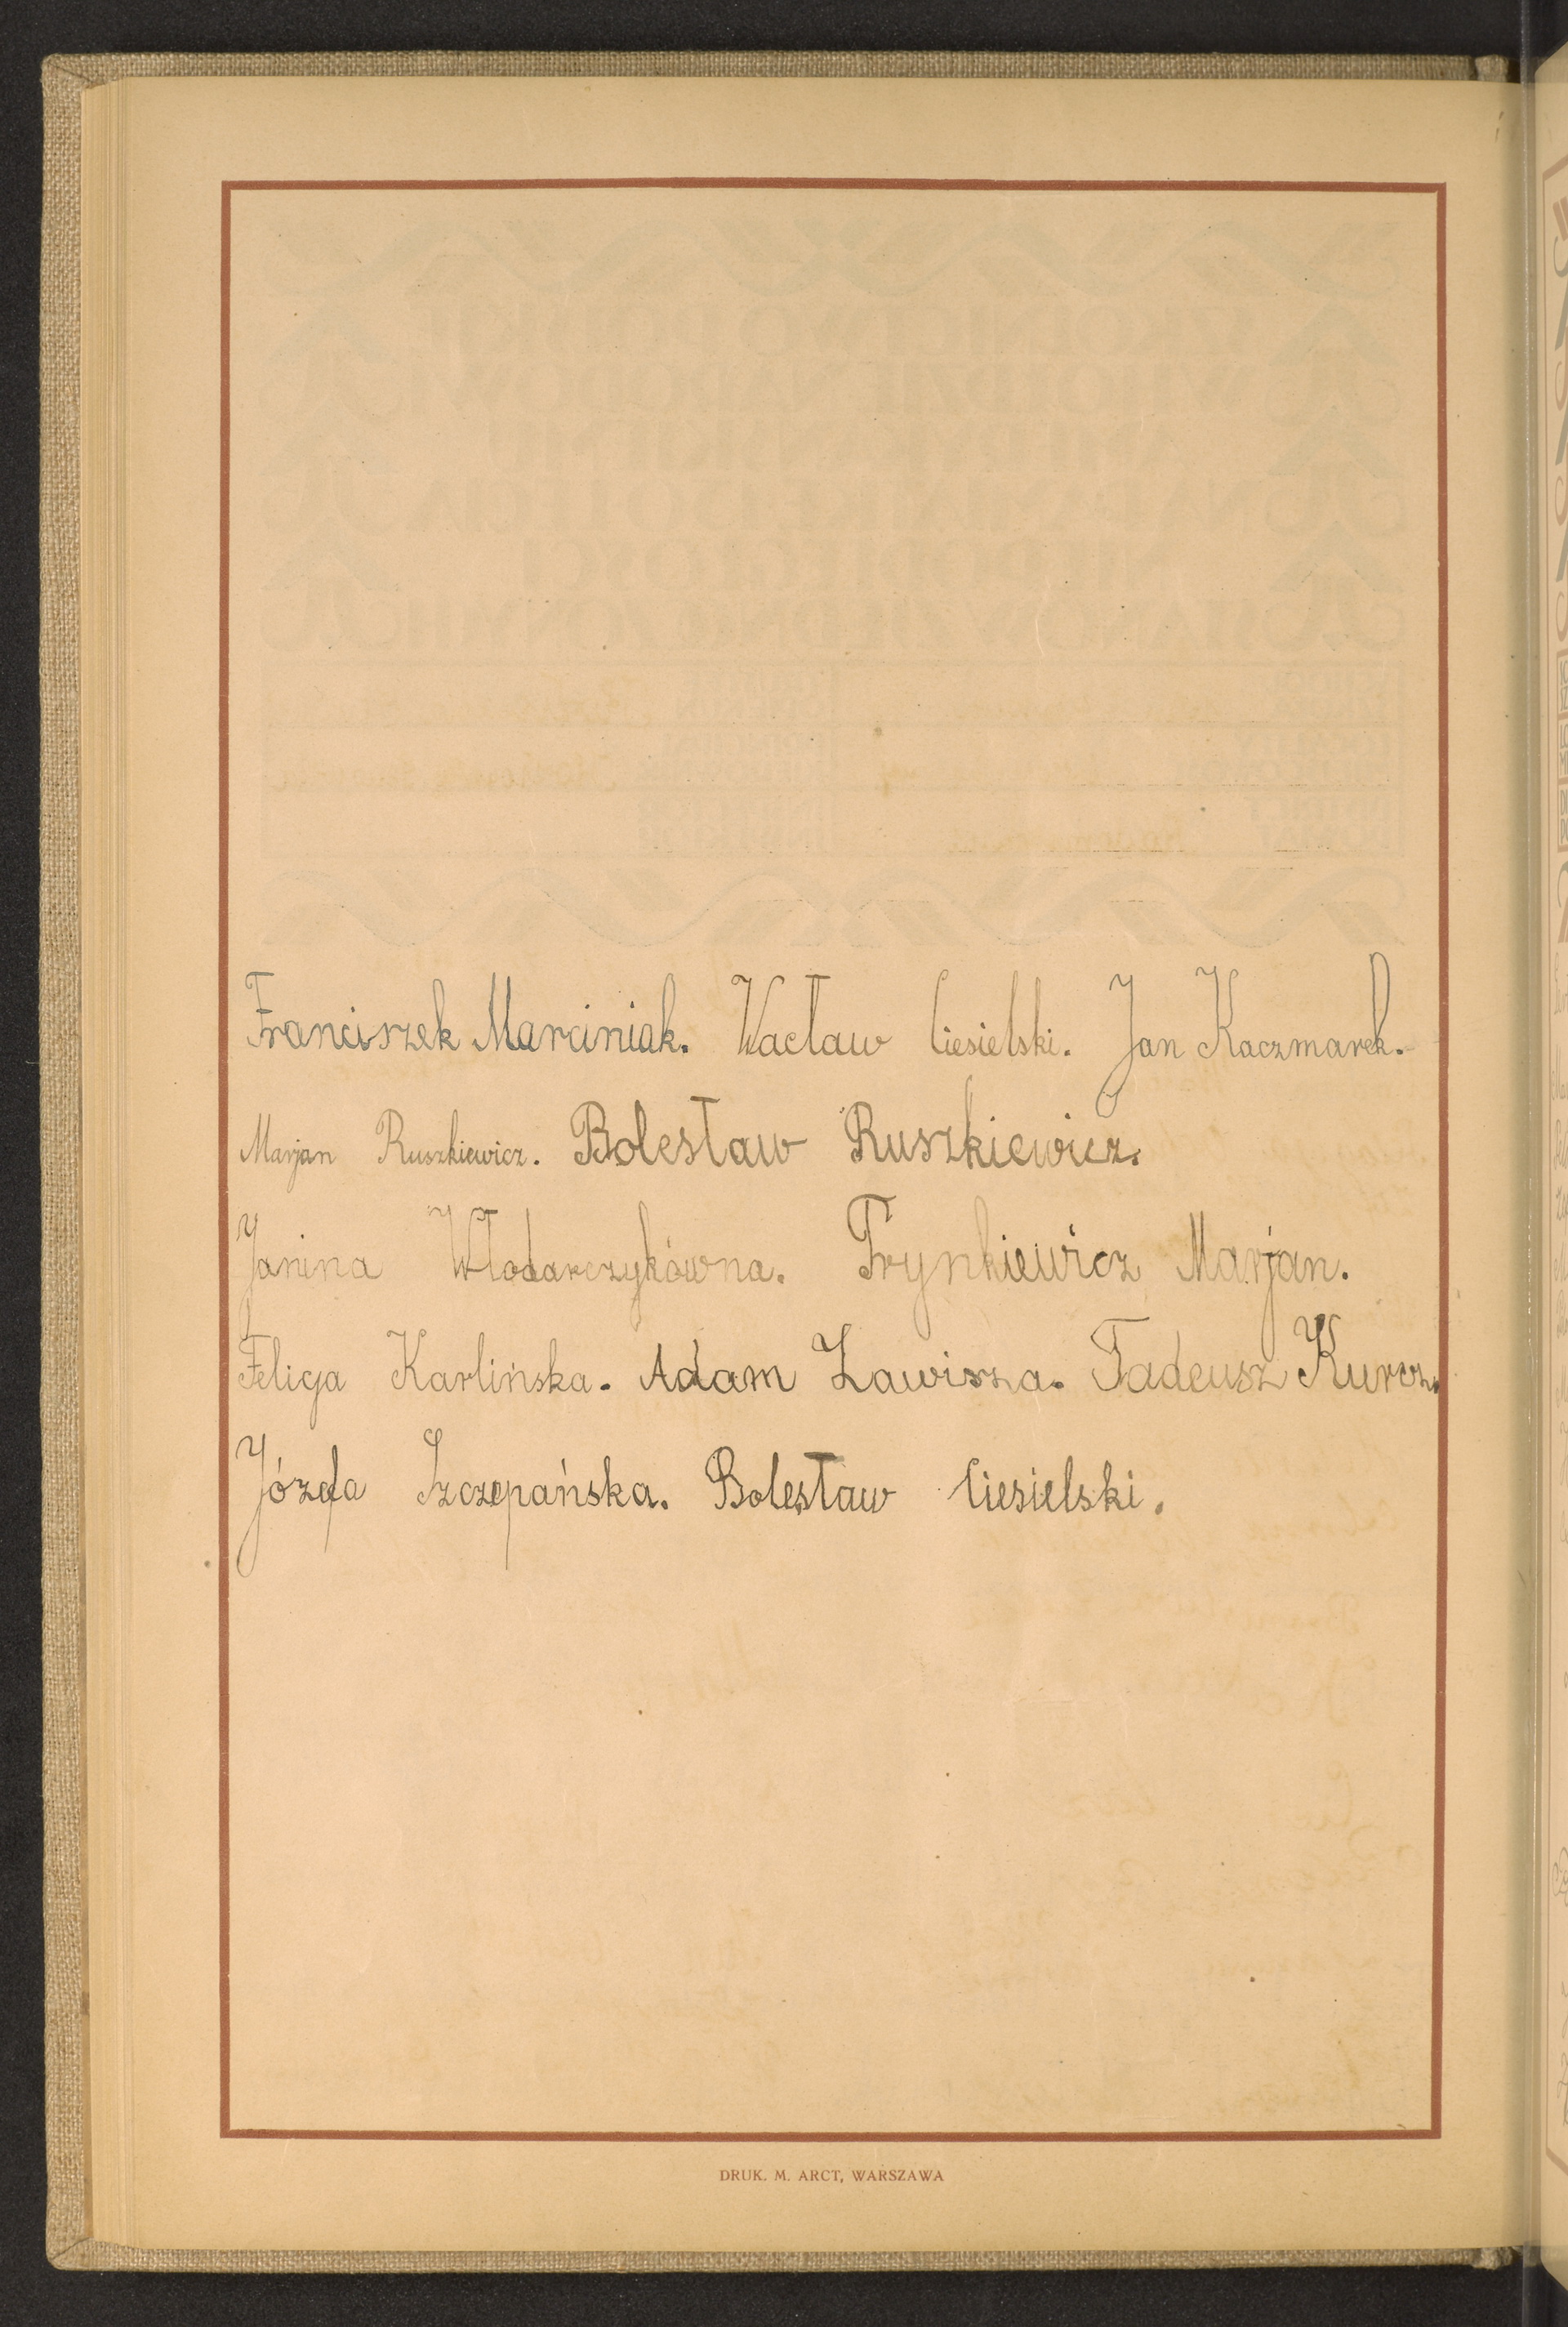 Franciszek Marciniak. Wacław Ciesielski. Jan Kaczmarek.
Marjan Ruszkiewicz. Bolesław Ruszkiewicz.
Janina Włodarczykówna. Frynkiewicz Marjan.
Feliga Karlińska. Adam Zawisza. Tadeusz Kurcz.
Józefa Szczepańska. Bolesław Ciesielski.
DRUK. M. ARCT, WARSZAWA